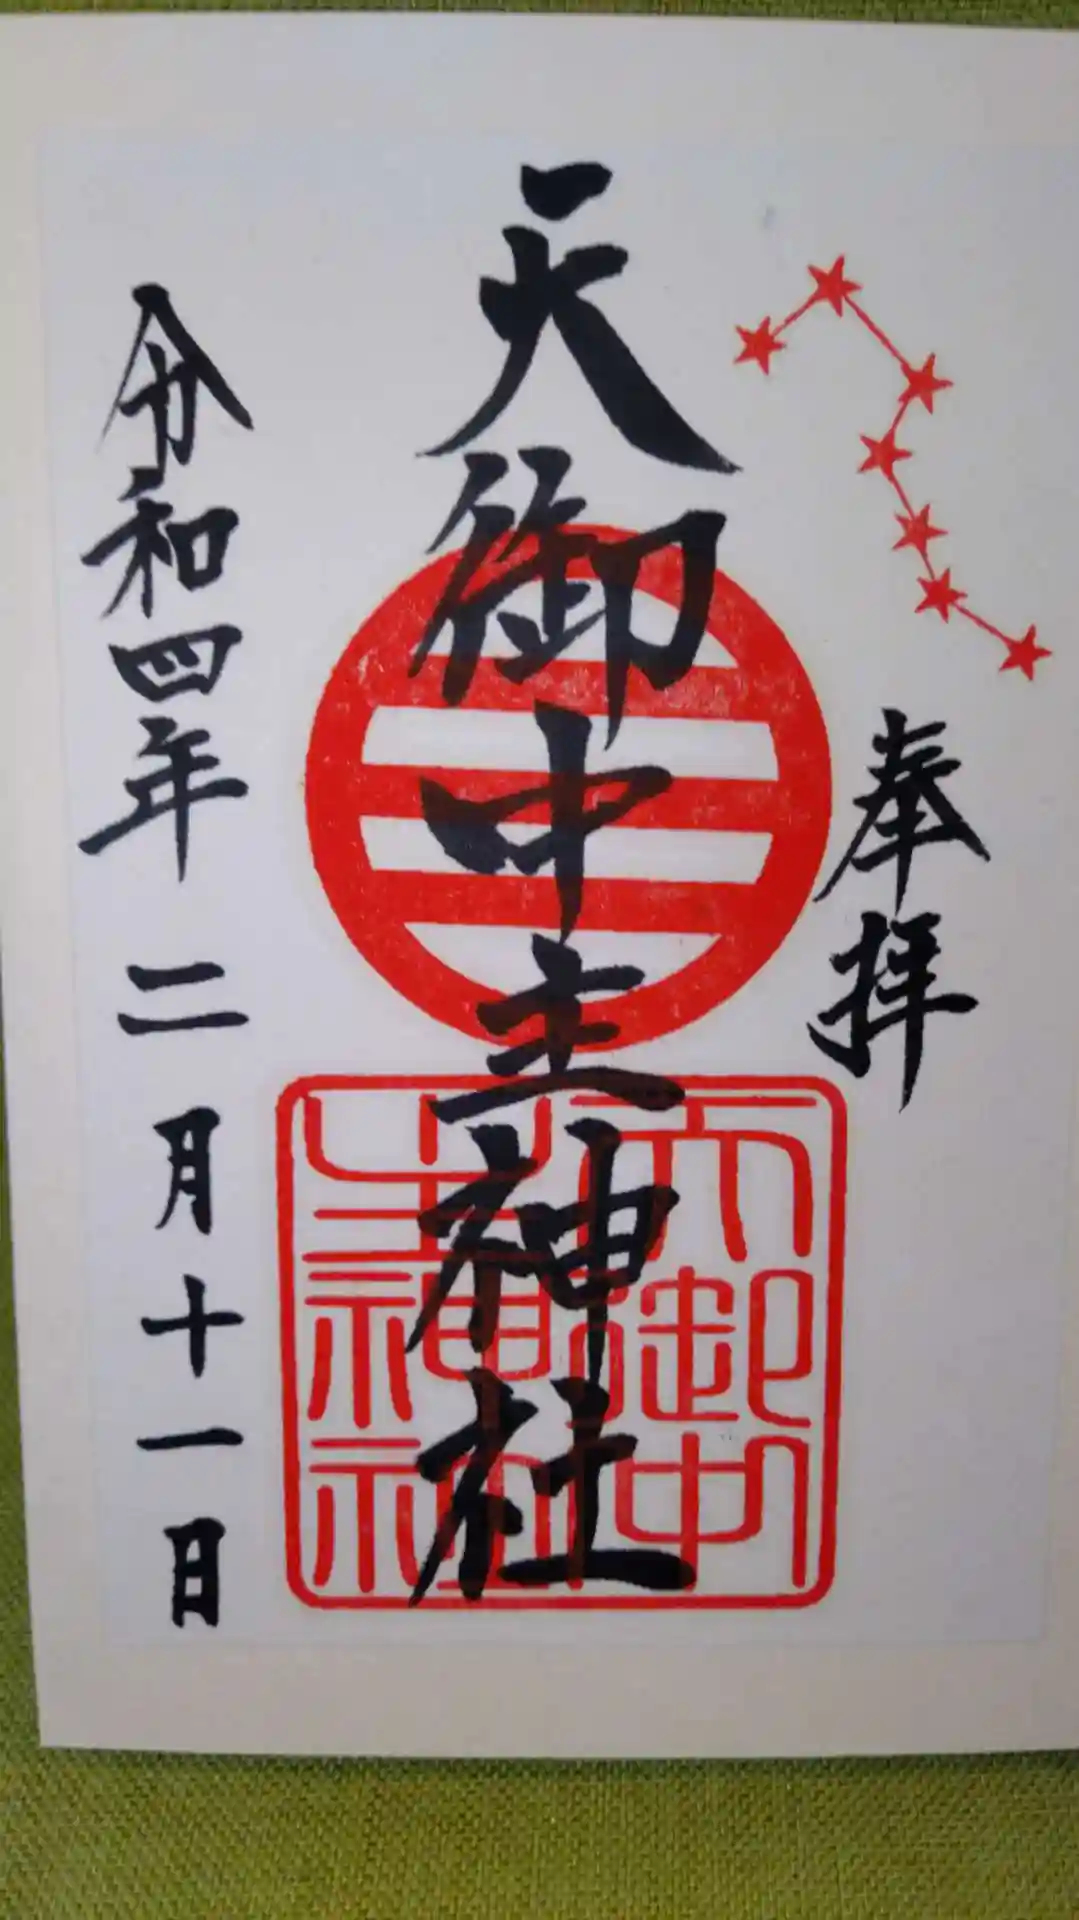 奉拝
天御中主神社
天御中
主神社
令和四年二月十一日